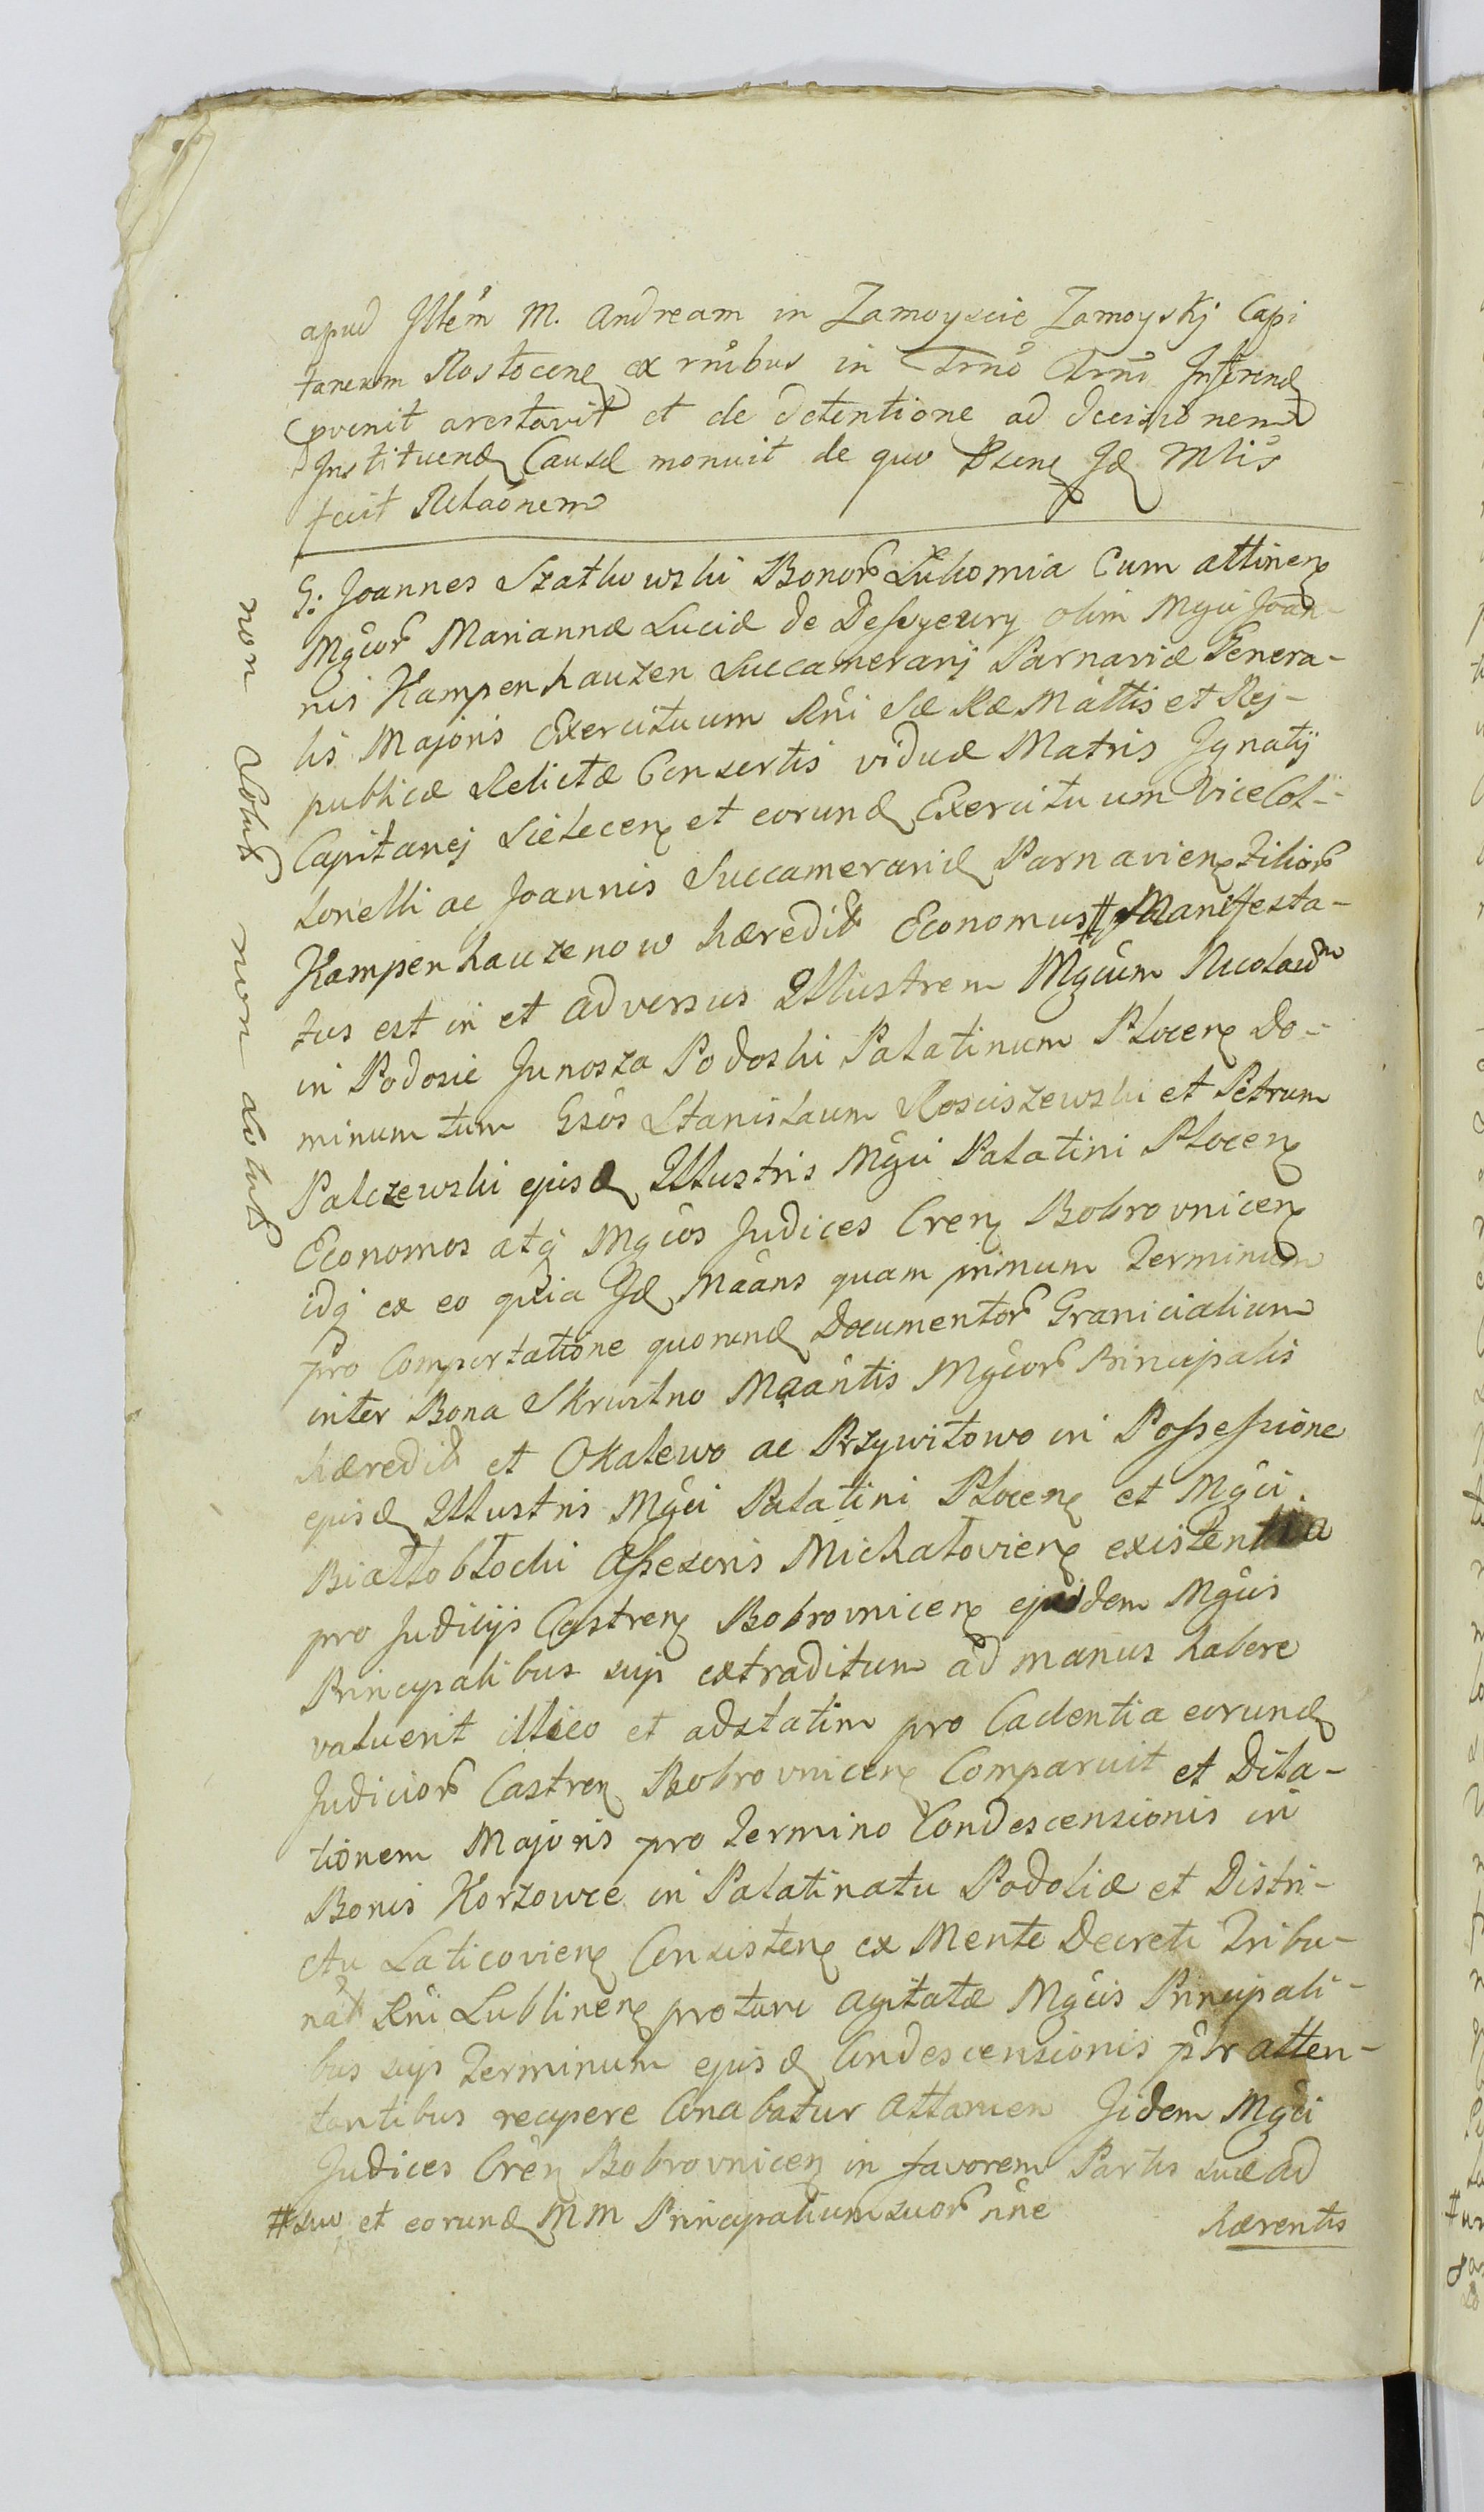 apud Jllem M. Andream in Zamoyscie Zamoyskj Capi
taneum Rostocen ex rnibus in Trno Trni Inferend
pvenit arestavit et de detentione ad decisionem
Instituend Causæ monuit de quo Psens Jd Mlis
fecit Relaonem
G: Joannes Szatkowski Bonor Lukomia Cum attinen
Mgcor Mariannæ Luciæ de olim Mgci Joan
nis Kampenhauzen Succamerarij Parnaviæ Genera-
lis Majoris Exercituum Rni Sæ Ræ Mattis et Rej-
publicæ Relictæ Consortis viduæ Matris Jgnatij
Capitanej Sielecen et eorund Exercituum ViceCol-
lonelli ac Joannis Succamerarid Parnavien Filior
Kampenhauzenow hæredit Economus # Manifesta-
tus est in et adversus Illustrem Mgcum Nicolaum
in Podosie Junosza Podoski Palatinum Plocen Do-
minum tum Gsos Stanislaum Rosciszewski et Petrum
Palczewski ejusd Illustris Mgci Palatini Plocen
Economos atq Mgcos Judices Cren Bobrovnicen
idq ex eo quia Jd Maans quam primum Terminum
pro Comportatione quorund Documentor Granicialium
inter Bona Skrwitno Maantis Mgcor Principalis
hæredit et Okalewo ac Przywitowo in Possessione
ejusd Illustris Mgci Palatini Plocen et Mgci
Bialłobłocki Assesoris Michałovien existentia
pro Judicijs Castren Bobrovnicen ejusdem Mgcis
Principalibus suis extraditum ad manus habere
valuerit illico et adstatim pro Cadentia eorund
Judicior Castren Bobrovnicen Comparuit et Dila-
tionem Majoris pro Termino Condescensionis in
Bonis Korzowce in Palatinatu Podoliæ et Distri-
ctu Laticovien Consisten ex Mente Decreti Tribu-
nat Rni Lublinen pro tunc agitatæ Mgcis Principali-
bus suis Terminum ejusd Condescensionis atten-
tantibus recipere Conabatur attamen Jidem Mgci
Judices Cren Bobrovnicen in favorem Partis suæ ad
# suo et eorund MM Principalium suor nne
hærentis
non Solut non solut